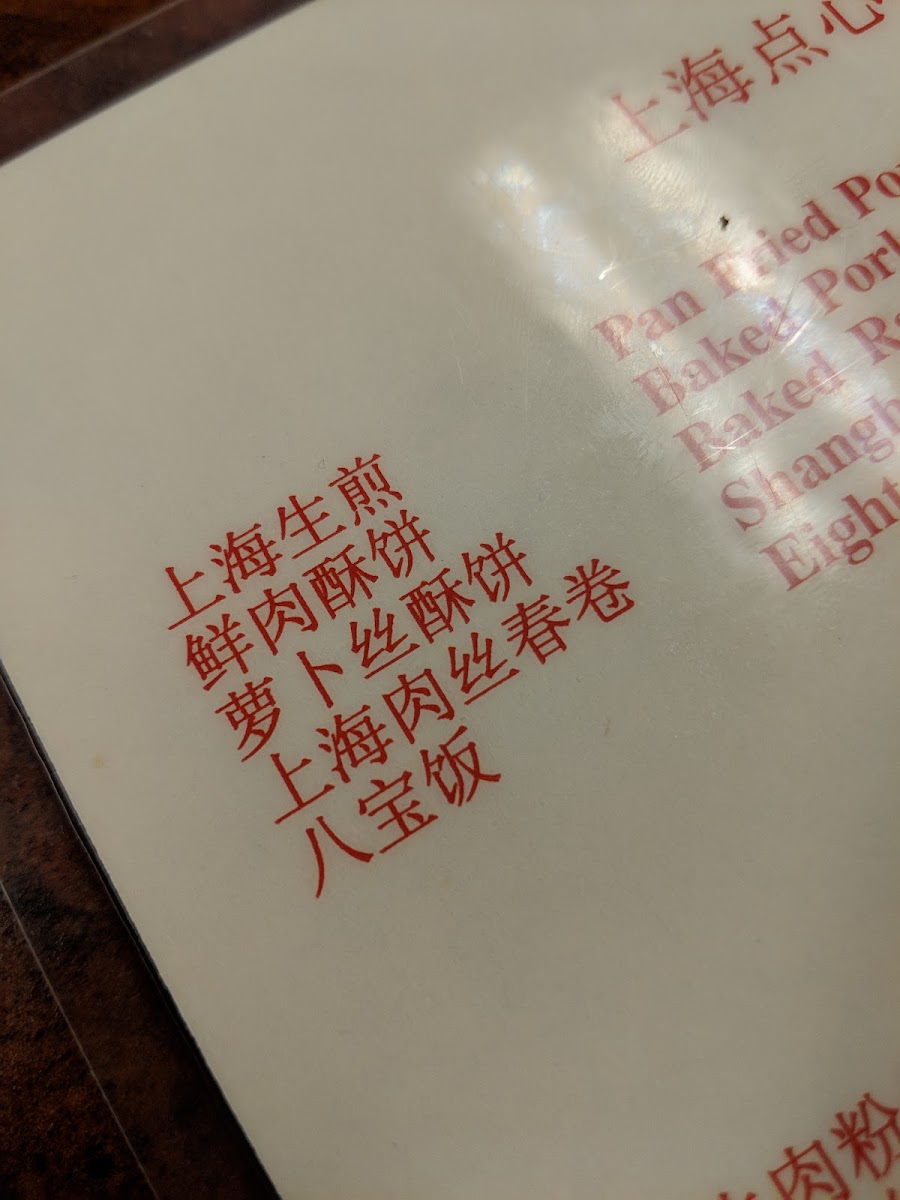 上海点心
Pan Fried
Baked
Baked
上海生煎
鲜肉酥饼
萝卜丝酥饼
上海肉丝春卷
八宝饭
肉粉